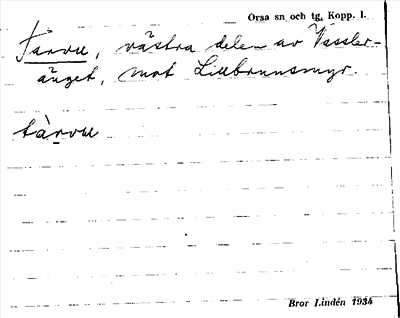 Orsa sn och tg, Kopp. l.
Tarvu, västra delen av Vassler-
änget, mot Lillbrunnsmyr.
tàrvu
Bror Lindén 1934